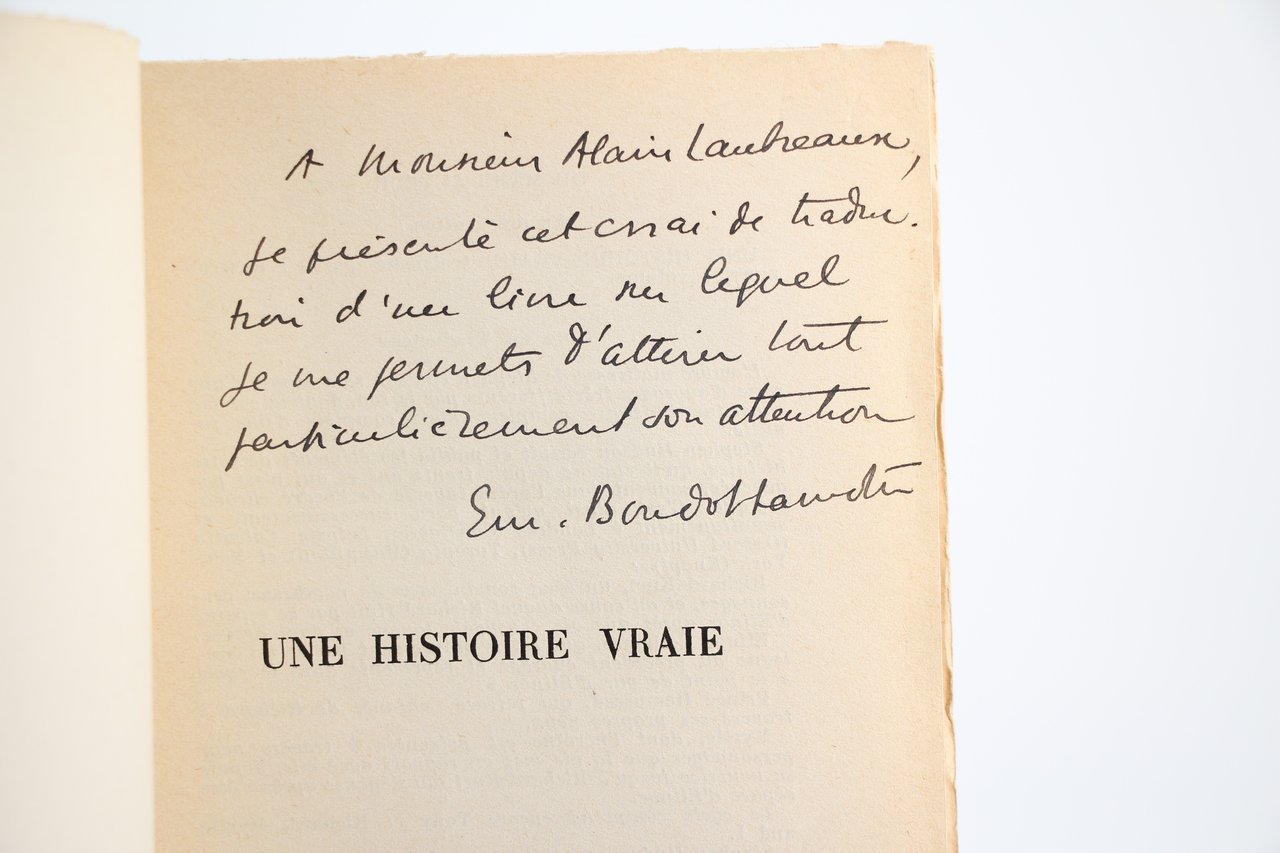 A Monsieur Alain Laubreaux,
je présente cet essai de traduc-
tion d'un livre sur lequel
je me permets d'attirer tout
particulièrement son attention
Em. Boudot Lamotte
UNE HISTOIRE VRAIE